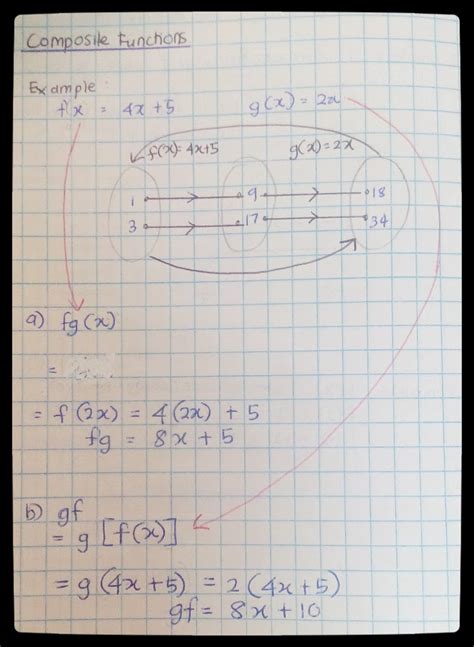 Composite Functions
Example:
f x = 4x + 5 g(x) = 2x
f(x) = 4x+5 g(x) = 2x
1 9 18
3 17 34
a) fg(x)
=
= f(2x) = 4(2x) + 5
fg = 8x + 5
b) gf
= g [f(x)]
= g(4x+5) = 2(4x+5)
gf = 8x + 10